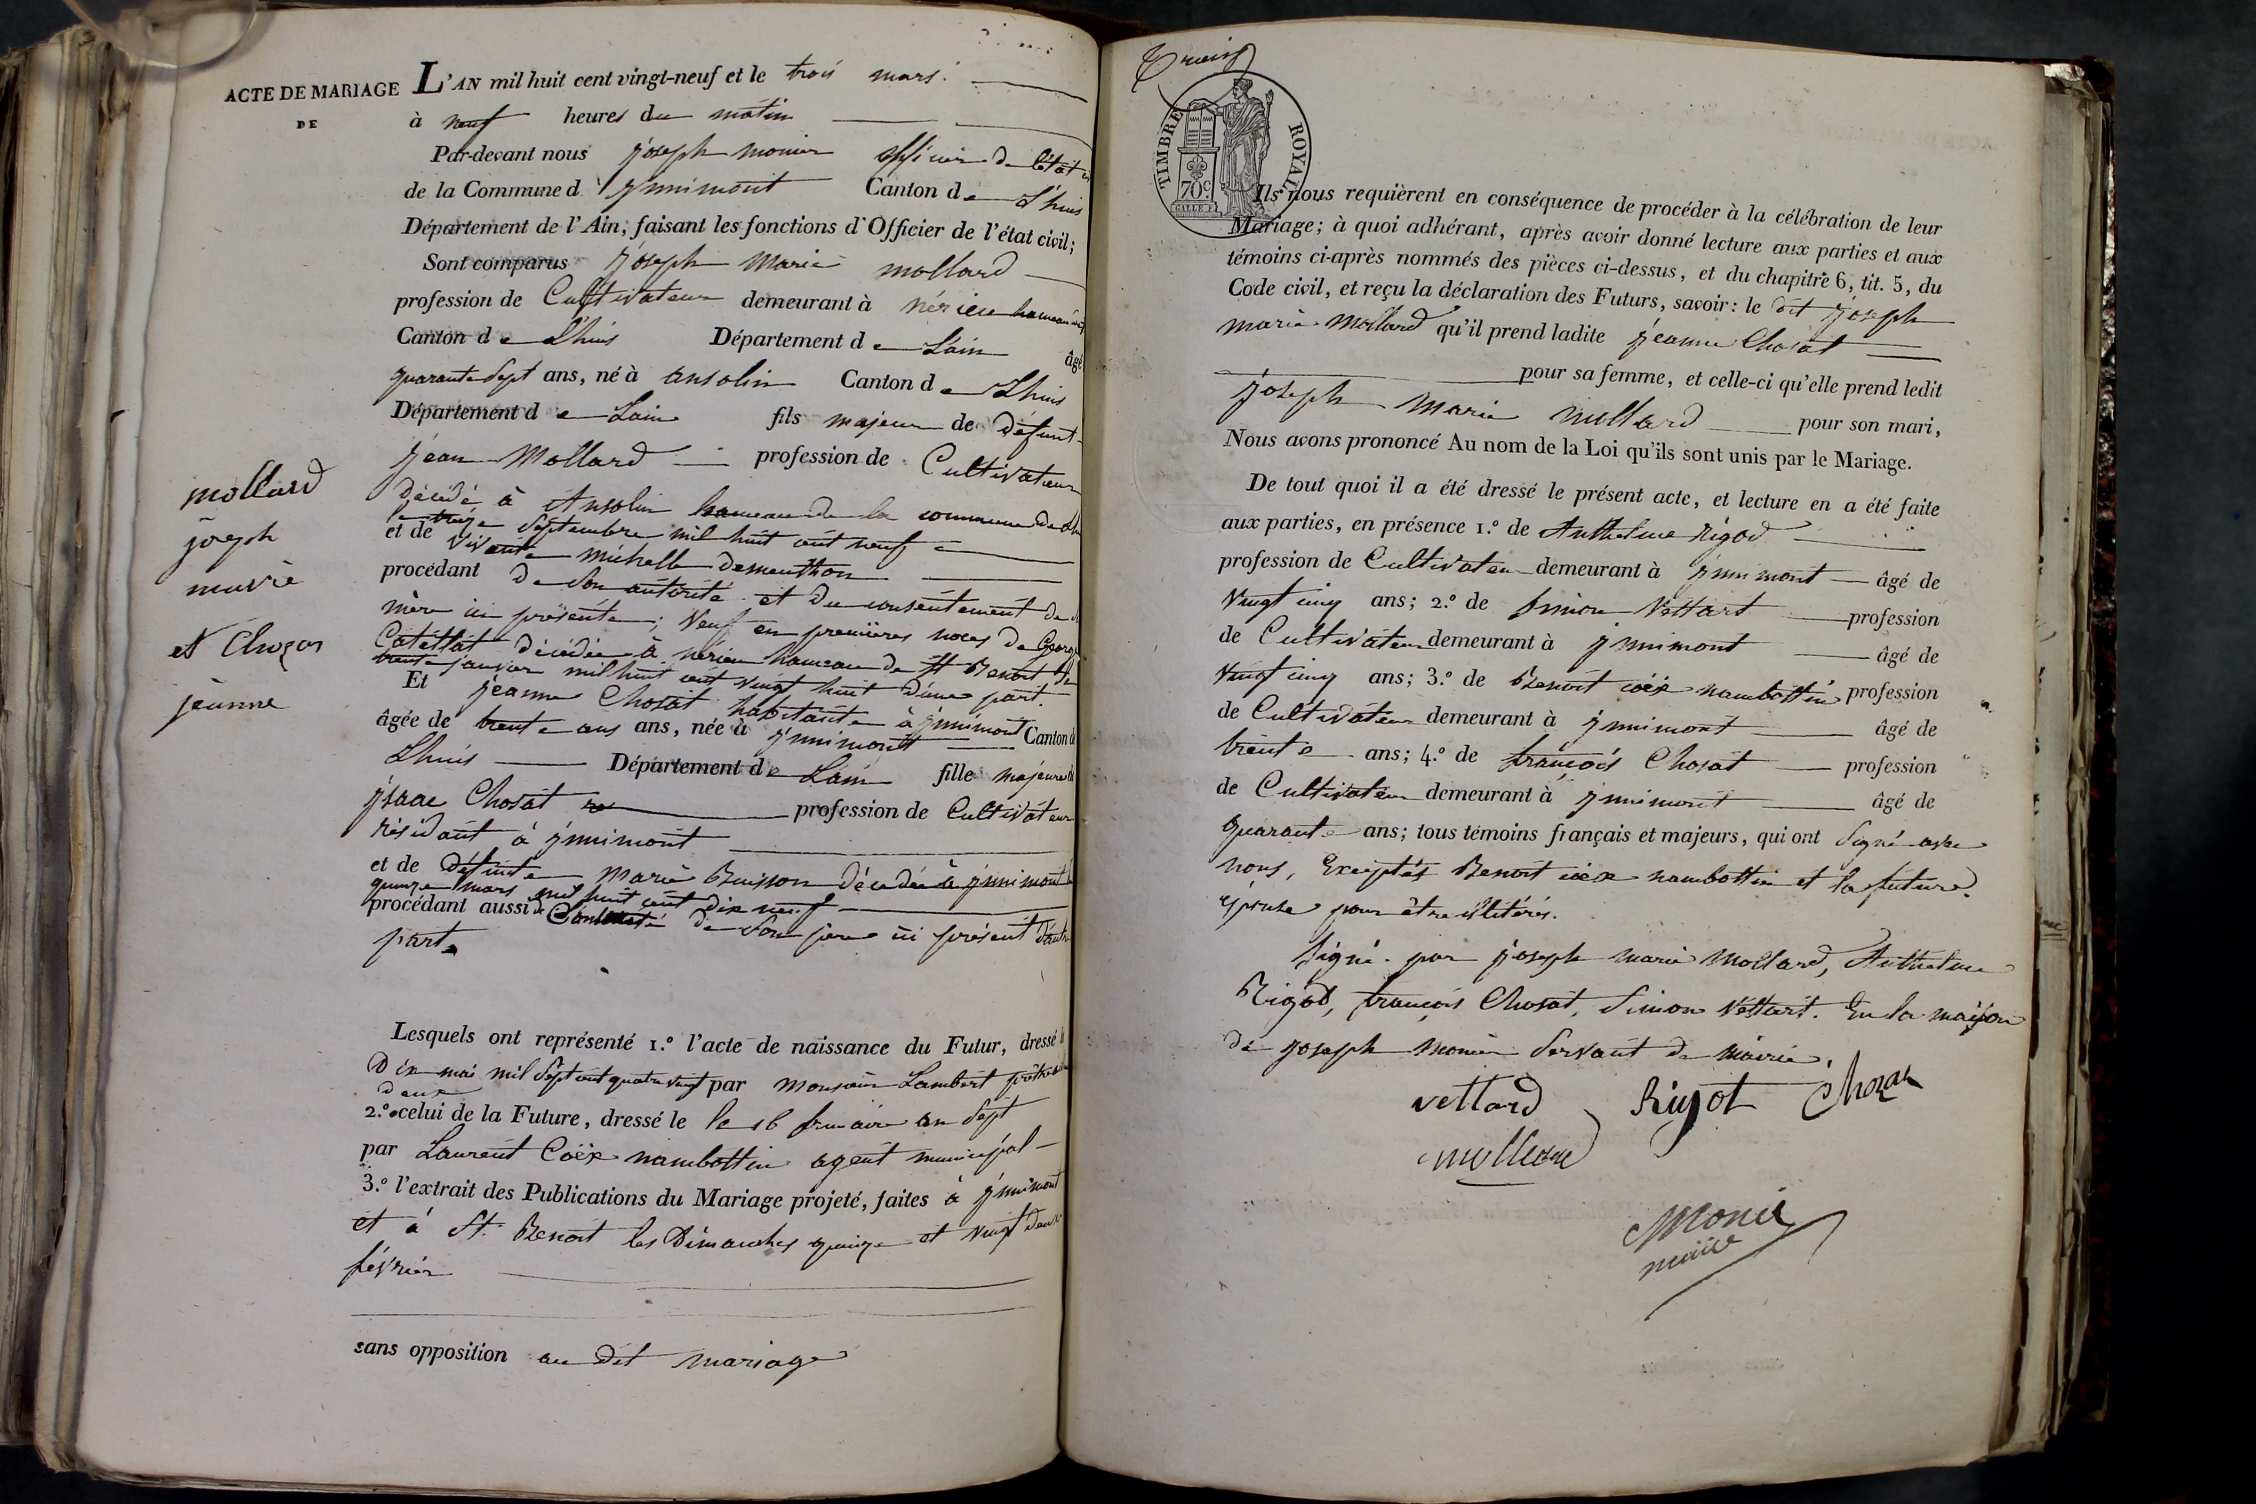 ACTE DE MARIAGE
DE
mollard
joseph
marie
et Chozas
jeanne
L'AN mil huit cent vingt-neuf et le trois mars.
à neuf heures du matin
Par-devant nous joseph monier officier de l'état
de la Commune d'ynnimont Canton de Lhuis
Département de l'Ain, faisant les fonctions d'Officier de l'état civil;
Sont comparus joseph marie mollard
profession de Cultivateur demeurant à nérieu hameau
Canton de Lhuis Département de Lain âgé
quarante sept ans, né à ansolin Canton de Lhuis
Département de Lain fils majeur de défunt
jean Mollard profession de Cultivateur
décédé à Ansolin hameau de la commune de
le treize Septembre mil huit cent neuf
et de vivante michelle dementhon
procédant de son autorité et du consentement de
mère ici présente; veuf en premières noces de
Catillat décédée à nérieu hameau de St Benoit le
trente janvier mil huit cent vingt huit d'une part.
Et jeanne Chosat habitante à ynnimont
âgée de trente ans ans, née à ynnimont Canton de
Lhuis Département de Lain fille majeure de
ysaac Chosat profession de Cultivateur
résidant à ynnimont
et de défunte Marie Buisson décédée à ynnimont le
quinze mars mil huit cent dix neuf
procédant aussi de de son père ici présent d'autre
part.
Lesquels ont représenté 1.º l'acte de naissance du Futur, dressé le
Dix mai mil sept cent quatre vingt par monsieur Lambert prêtre
deux
2.º celui de la Future, dressé le le 16 frimaire an sept
par Laurent Coëx nambottin agent municipal
3.º l'extrait des Publications du Mariage projeté, faites à ynnimont
et à St. Benoit les Dimanches quinze et vingt deux
février
sans opposition au dit mariage
TIMBRE ROYAL
70c.
Ils nous requièrent en conséquence de procéder à la célébration de leur
Mariage; à quoi adhérant, après avoir donné lecture aux parties et aux
témoins ci-après nommés des pièces ci-dessus, et du chapitre 6, tit. 5, du
Code civil, et reçu la déclaration des Futurs, savoir: le dit joseph
marie Mollard qu'il prend ladite jeanne Chosat
pour sa femme, et celle-ci qu'elle prend ledit
joseph marie mollard pour son mari,
Nous avons prononcé Au nom de la Loi qu'ils sont unis par le Mariage.
De tout quoi il a été dressé le présent acte, et lecture en a été faite
aux parties, en présence 1.º de Anthelme Rigod
profession de Cultivateur demeurant à ynnimont âgé de
vingt cinq ans; 2.º de Simon Vettart profession
de Cultivateur demeurant à ynnimont âgé de
vingt cinq ans; 3.º de Benoit coëx nambottin profession
de Cultivateur demeurant à ynnimont âgé de
trente ans; 4.º de françois Chosat profession
de Cultivateur demeurant à ynnimont âgé de
quarante ans; tous témoins français et majeurs, qui ont signé avec
nous, Exceptés Benoit coëx nambottin et la future
épouse pour être illitérés.
signé par joseph marie Mollard, Anthelme
Rigod, françois Chosat, Simon Vettart. En la maison
de joseph monier servant de mairie.
vettard Rigot Chozas
mollard
Monié
maire